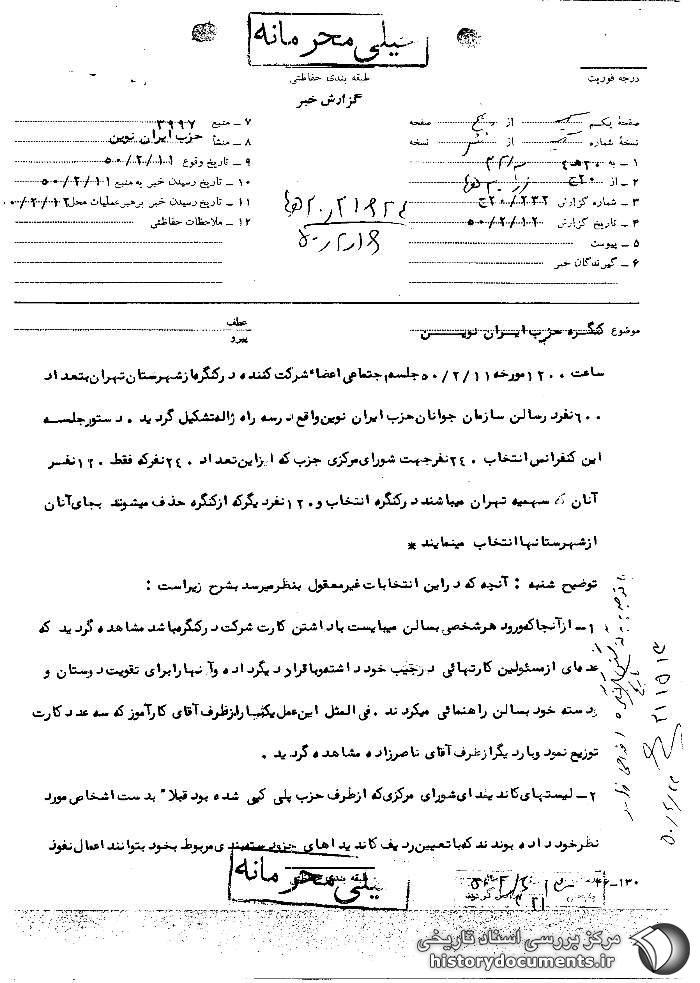 خیلی محرمانه
طبقه بندی حفاظتی
درجه فوریت
گزارش خبر
صفحهٔ یکم از پنج صفحه
نسخهٔ شماره از نسخه
۱ ـ به
۲ ـ از ۲۰ ه‍ ۳
۳ ـ شماره گزارش
۴ ـ تاریخ گزارش ۵۰/۲/۱۲
۵ ـ پیوست
۶ ـ گیرندگان خبر
۷ ـ منبع ۳۹۹۷
۸ ـ منشأ حزب ایران نوین
۹ ـ تاریخ وقوع ۵۰/۲/۱۱
۱۰ ـ تاریخ رسیدن خبر به منبع ۵۰/۲/۱۱
۱۱ ـ تاریخ رسیدن خبر برهبر عملیات محل ۵۰/۲/۱۲
۱۲ ـ ملاحظات حفاظتی
موضوع کنگره حزب ایران نوین
عطف
پیرو
ساعت ۱۲۰۰ مورخه ۵۰/۲/۱۱ جلسه اجتماعی اعضاء شرکت کننده در کنگره از شهرستان تهران بتعداد
۶۰۰ نفر در سالن سازمان جوانان حزب ایران نوین واقع در سه راه ژاله تشکیل گردید . دستور جلسه
این کنفرانس انتخاب ۲۴۰ نفر جهت شورای مرکزی حزب که از این تعداد ۲۴۰ نفر که فقط ۱۲۰ نفر
آنان که سهمیه تهران میباشند در کنگره انتخاب و ۱۲۰ نفر دیگر که از کنگره حذف میشوند بجای آنان
از شهرستانها انتخاب مینمایند *
توضیح شنبه : آنچه که در این انتخابات غیر معقول بنظر میرسد بشرح زیر است :
۱ـ از آنجا که ورود هر شخصی بسالن میبایست با داشتن کارت شرکت در کنگره باشد مشاهده گردید که
عده ای از مسئولین کارتهائی در جیب خود داشته و با قرار دیگر داده و آنها را برای تقویت دوستان و
دسته خود بسالن راهنمائی میکردند . فی المثل این عمل یکبار از طرف آقای کارآموز که سه عدد کارت
توزیع نمود و بار دیگر از طرف آقای ناصرزاده مشاهده گردید .
۲ـ لیستهای کاندیدای شورای مرکزی که از طرف حزب پلی کپی شده بود قبلا" بدست اشخاص مورد
نظر خود داده بودند که با تعیین ردیف کاندیداهای جزو دسته بندی مربوط بخود بتوانند اعمال نفوذ
طبقه بندی حفاظتی
خیلی محرمانه
۴۶-۱۳۰
مرکز بررسی اسناد تاریخی
historydocuments.ir